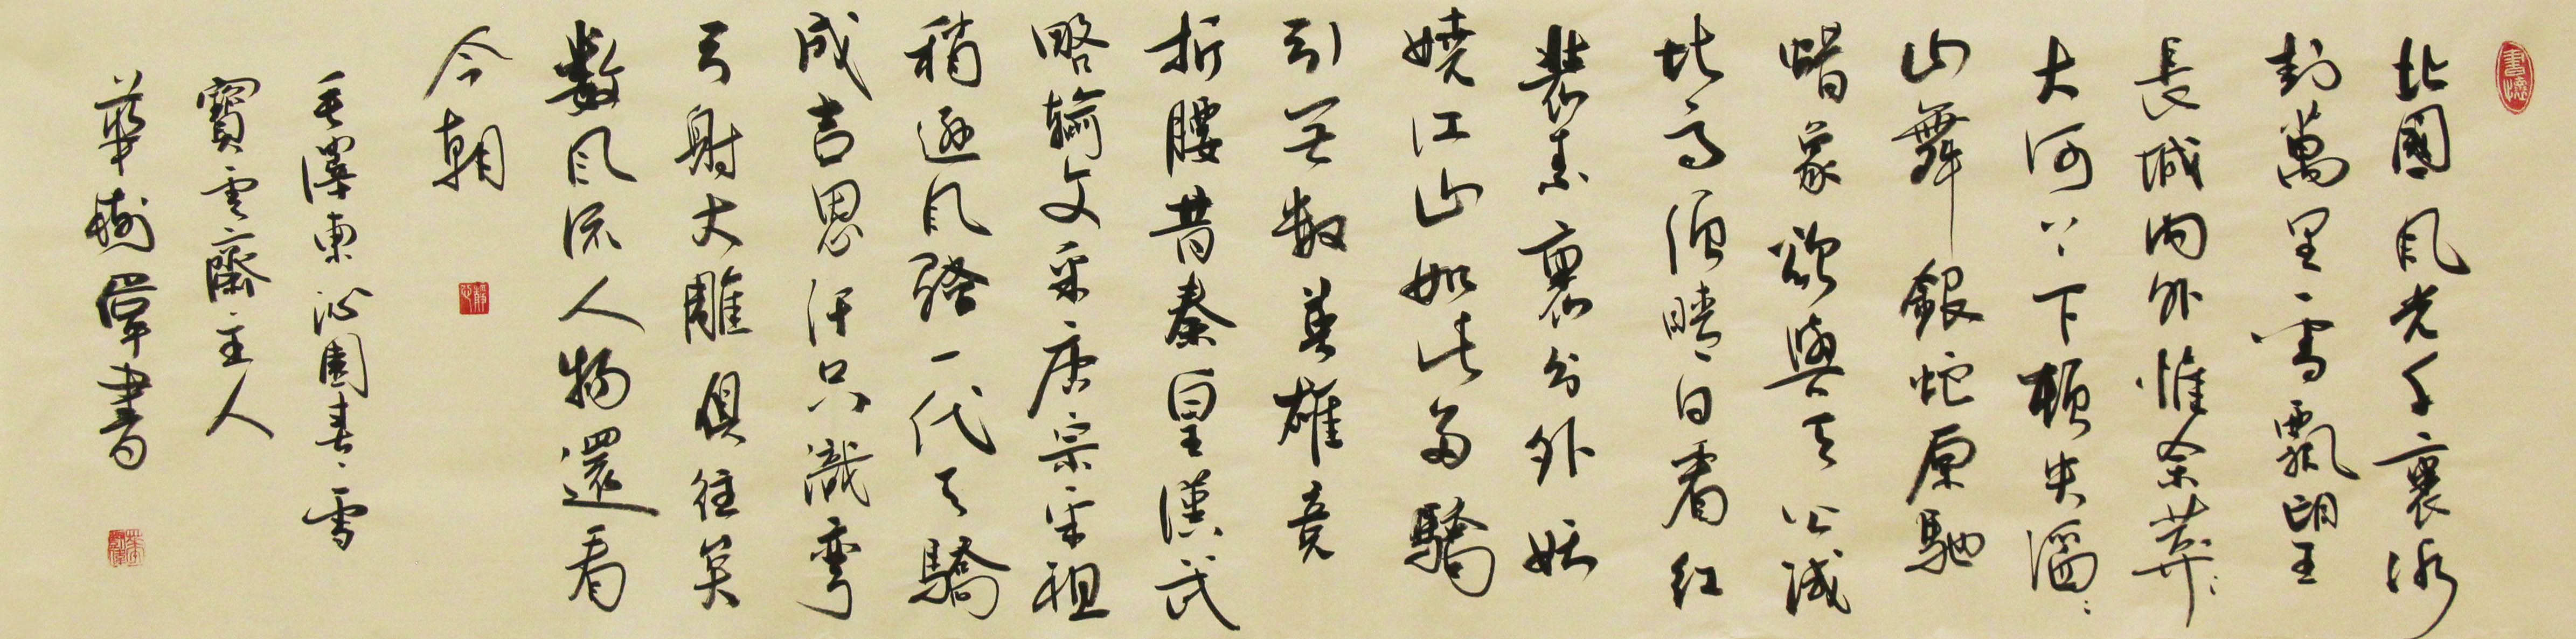 北國風光千裏冰
封萬里雪飄望
長城內外惟余莽〻
大河上下頓失滔〻
山舞銀蛇原馳
蜡象欲與天公試
比高須晴日看紅
裝素裹分外妖
嬈江山如此多驕
引无數英雄競
折腰昔秦皇漢武
略輸文采唐宗宋祖
稍遜風騷一代天驕
成吉思汗只識彎
弓射大雕俱往矣
數風流人物還看
今朝
毛澤東沁園春、雪
寶雲齋主人
華樹書